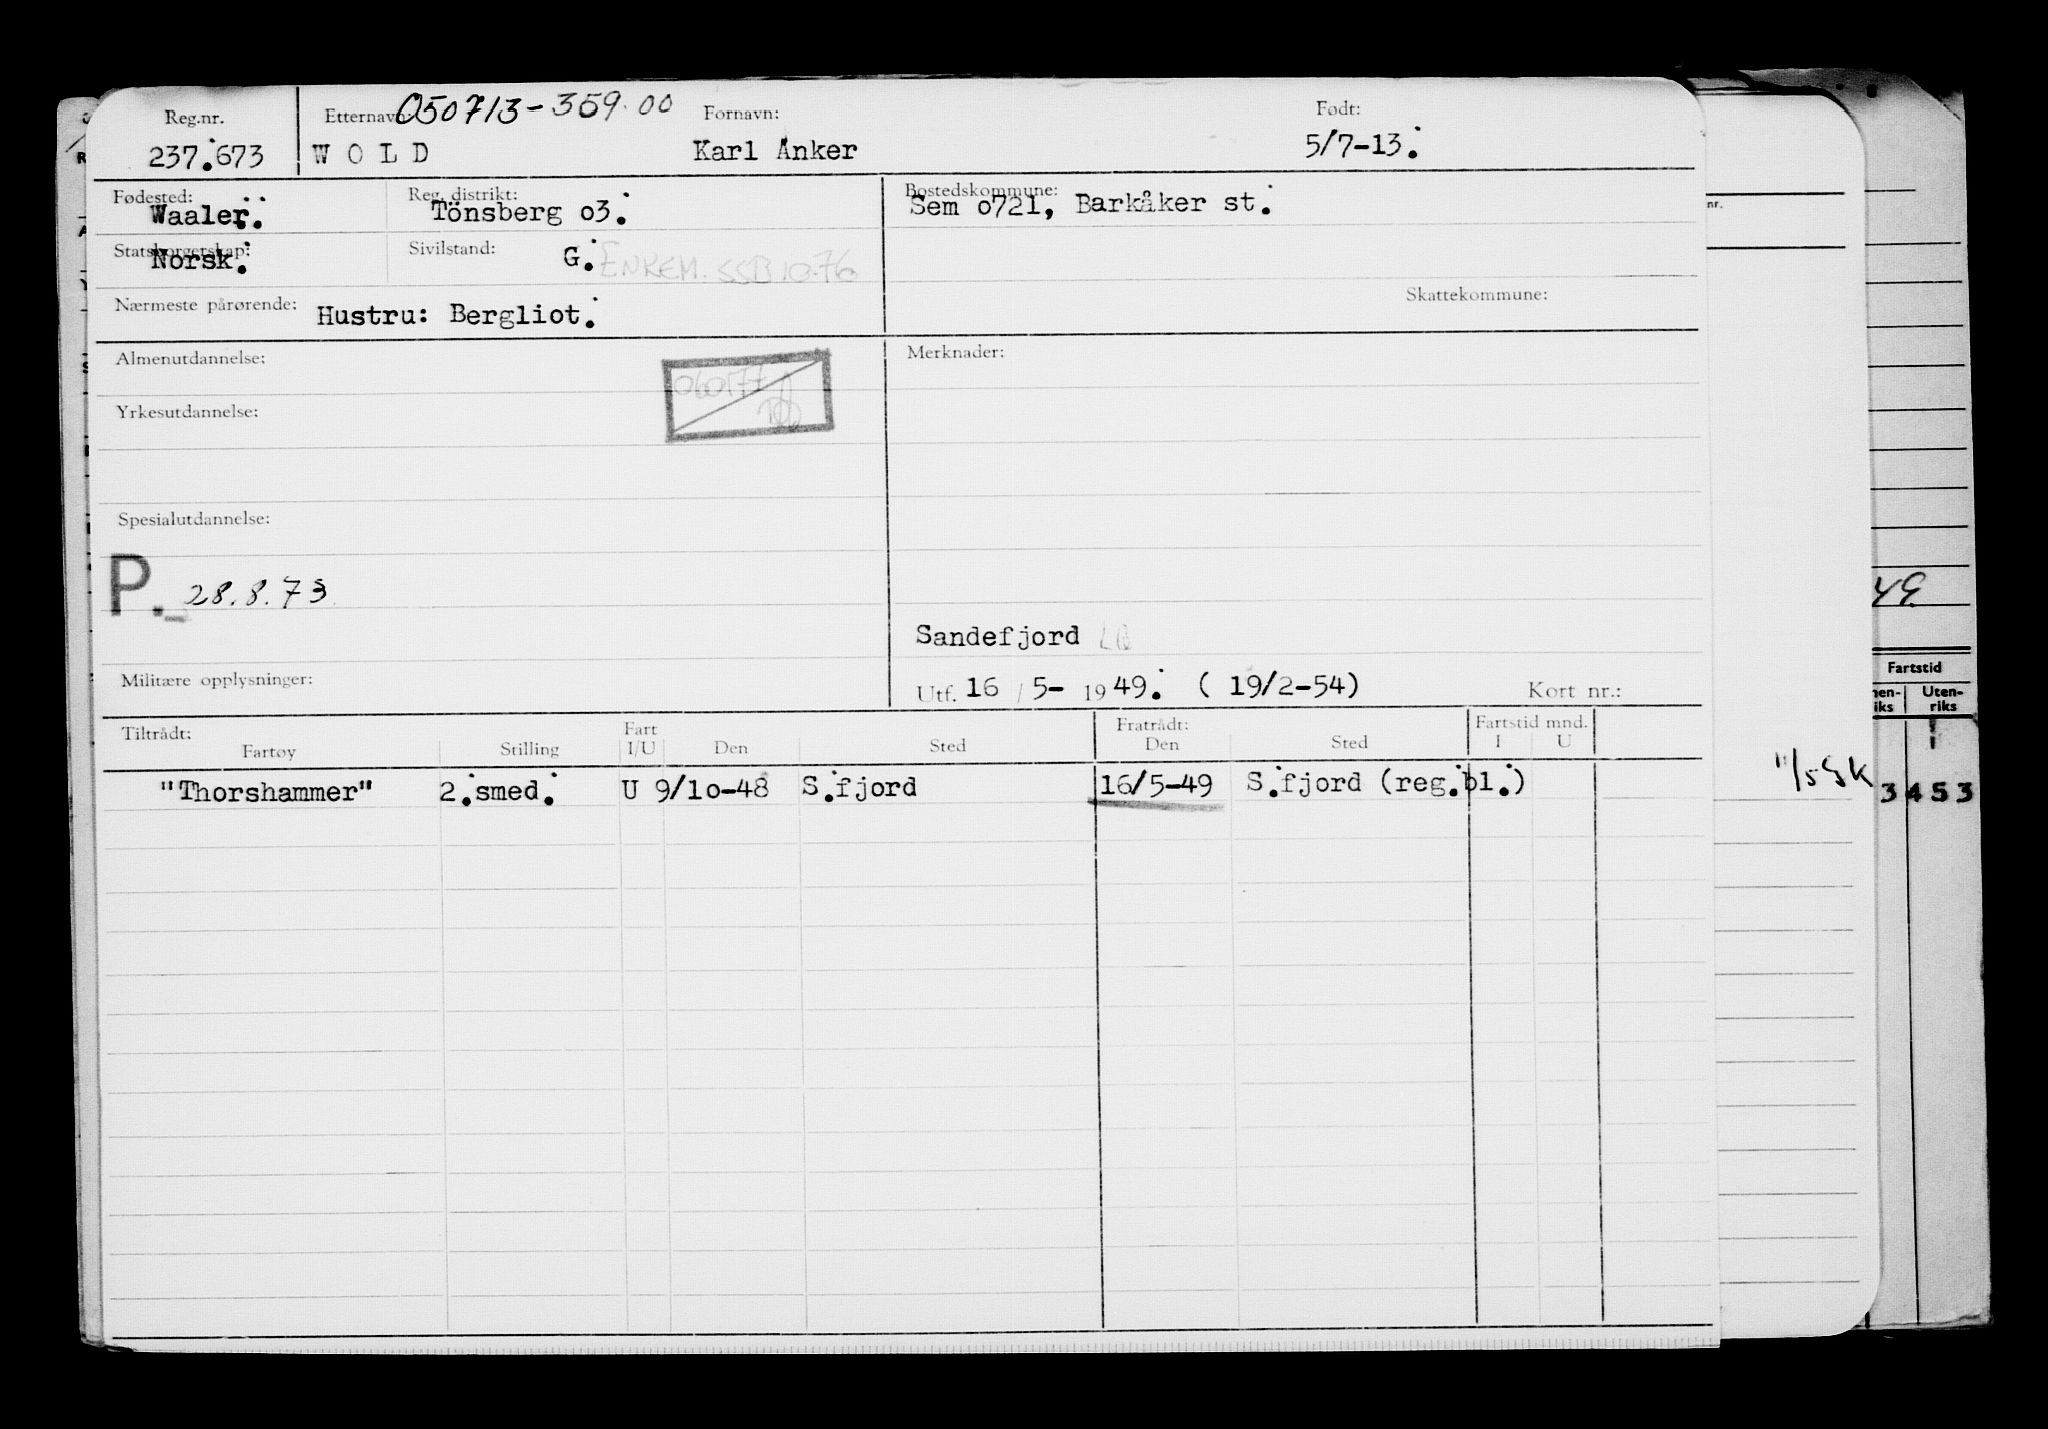 Reg.nr. Etternavn: 050713-359.00 Fornavn: Født:
237.673 WOLD Karl Anker 5/7-13.
Fødested: Reg. distrikt: Bostedskommune:
Waaler. Tönsberg o3. Sem o721, Barkåker st.
Statsborgerskap: Sivilstand:
Norsk. G. ENKEM. SSB 10.76
Nærmeste pårørende: Hustru: Bergliot. Skattekommune:
Almenutdannelse: Merknader:
060177
Yrkesutdannelse:
Spesialutdannelse:
P. 28.8.73
Sandefjord
Militære opplysninger: Utf. 16 / 5- 1949. ( 19/2-54) Kort nr.:
Tiltrådt: Fart Fratrådt: Fartstid mnd.
Fartøy Stilling I/U Den Sted Den Sted I U
"Thorshammer" 2.smed. U 9/1o-48 S.fjord 16/5-49 S.fjord (reg.bl.)
nr.
49.
Fartstid
nen- Uten-
iks riks
11/5 GK 3 4 5 3